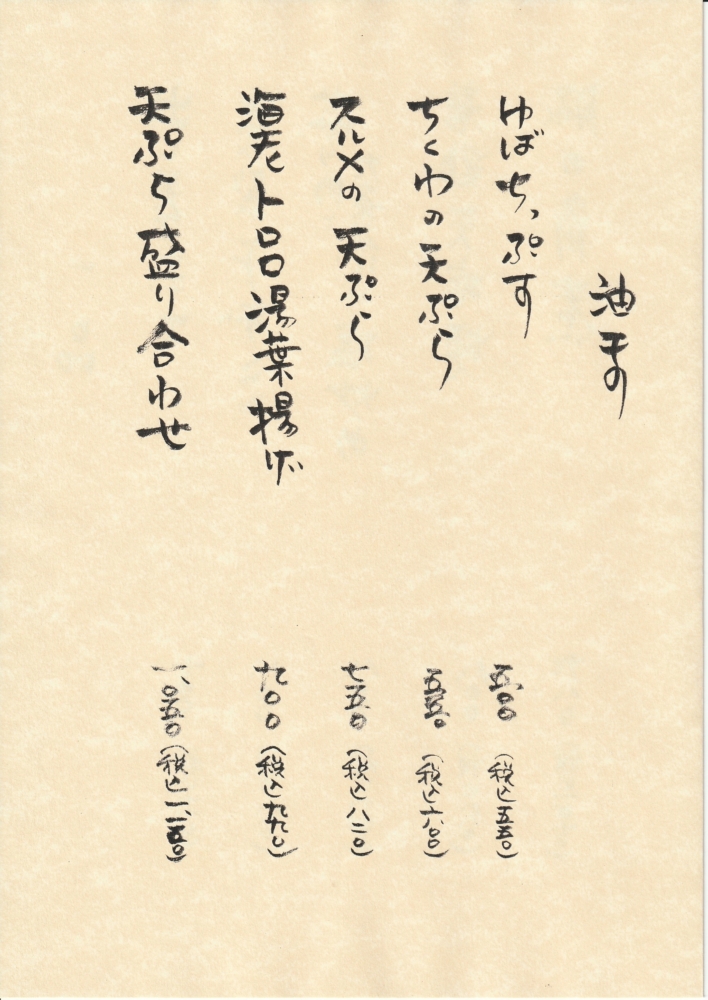 油もの
ゆばちっぷす 五〇〇（税込五五〇）
ちくわの天ぷら 五五〇（税込六〇〇）
スルメの天ぷら 七五〇（税込八二〇）
海老トロロ湯葉揚げ 九〇〇（税込九九〇）
天ぷら盛り合わせ 一、〇五〇（税込一、一五〇）